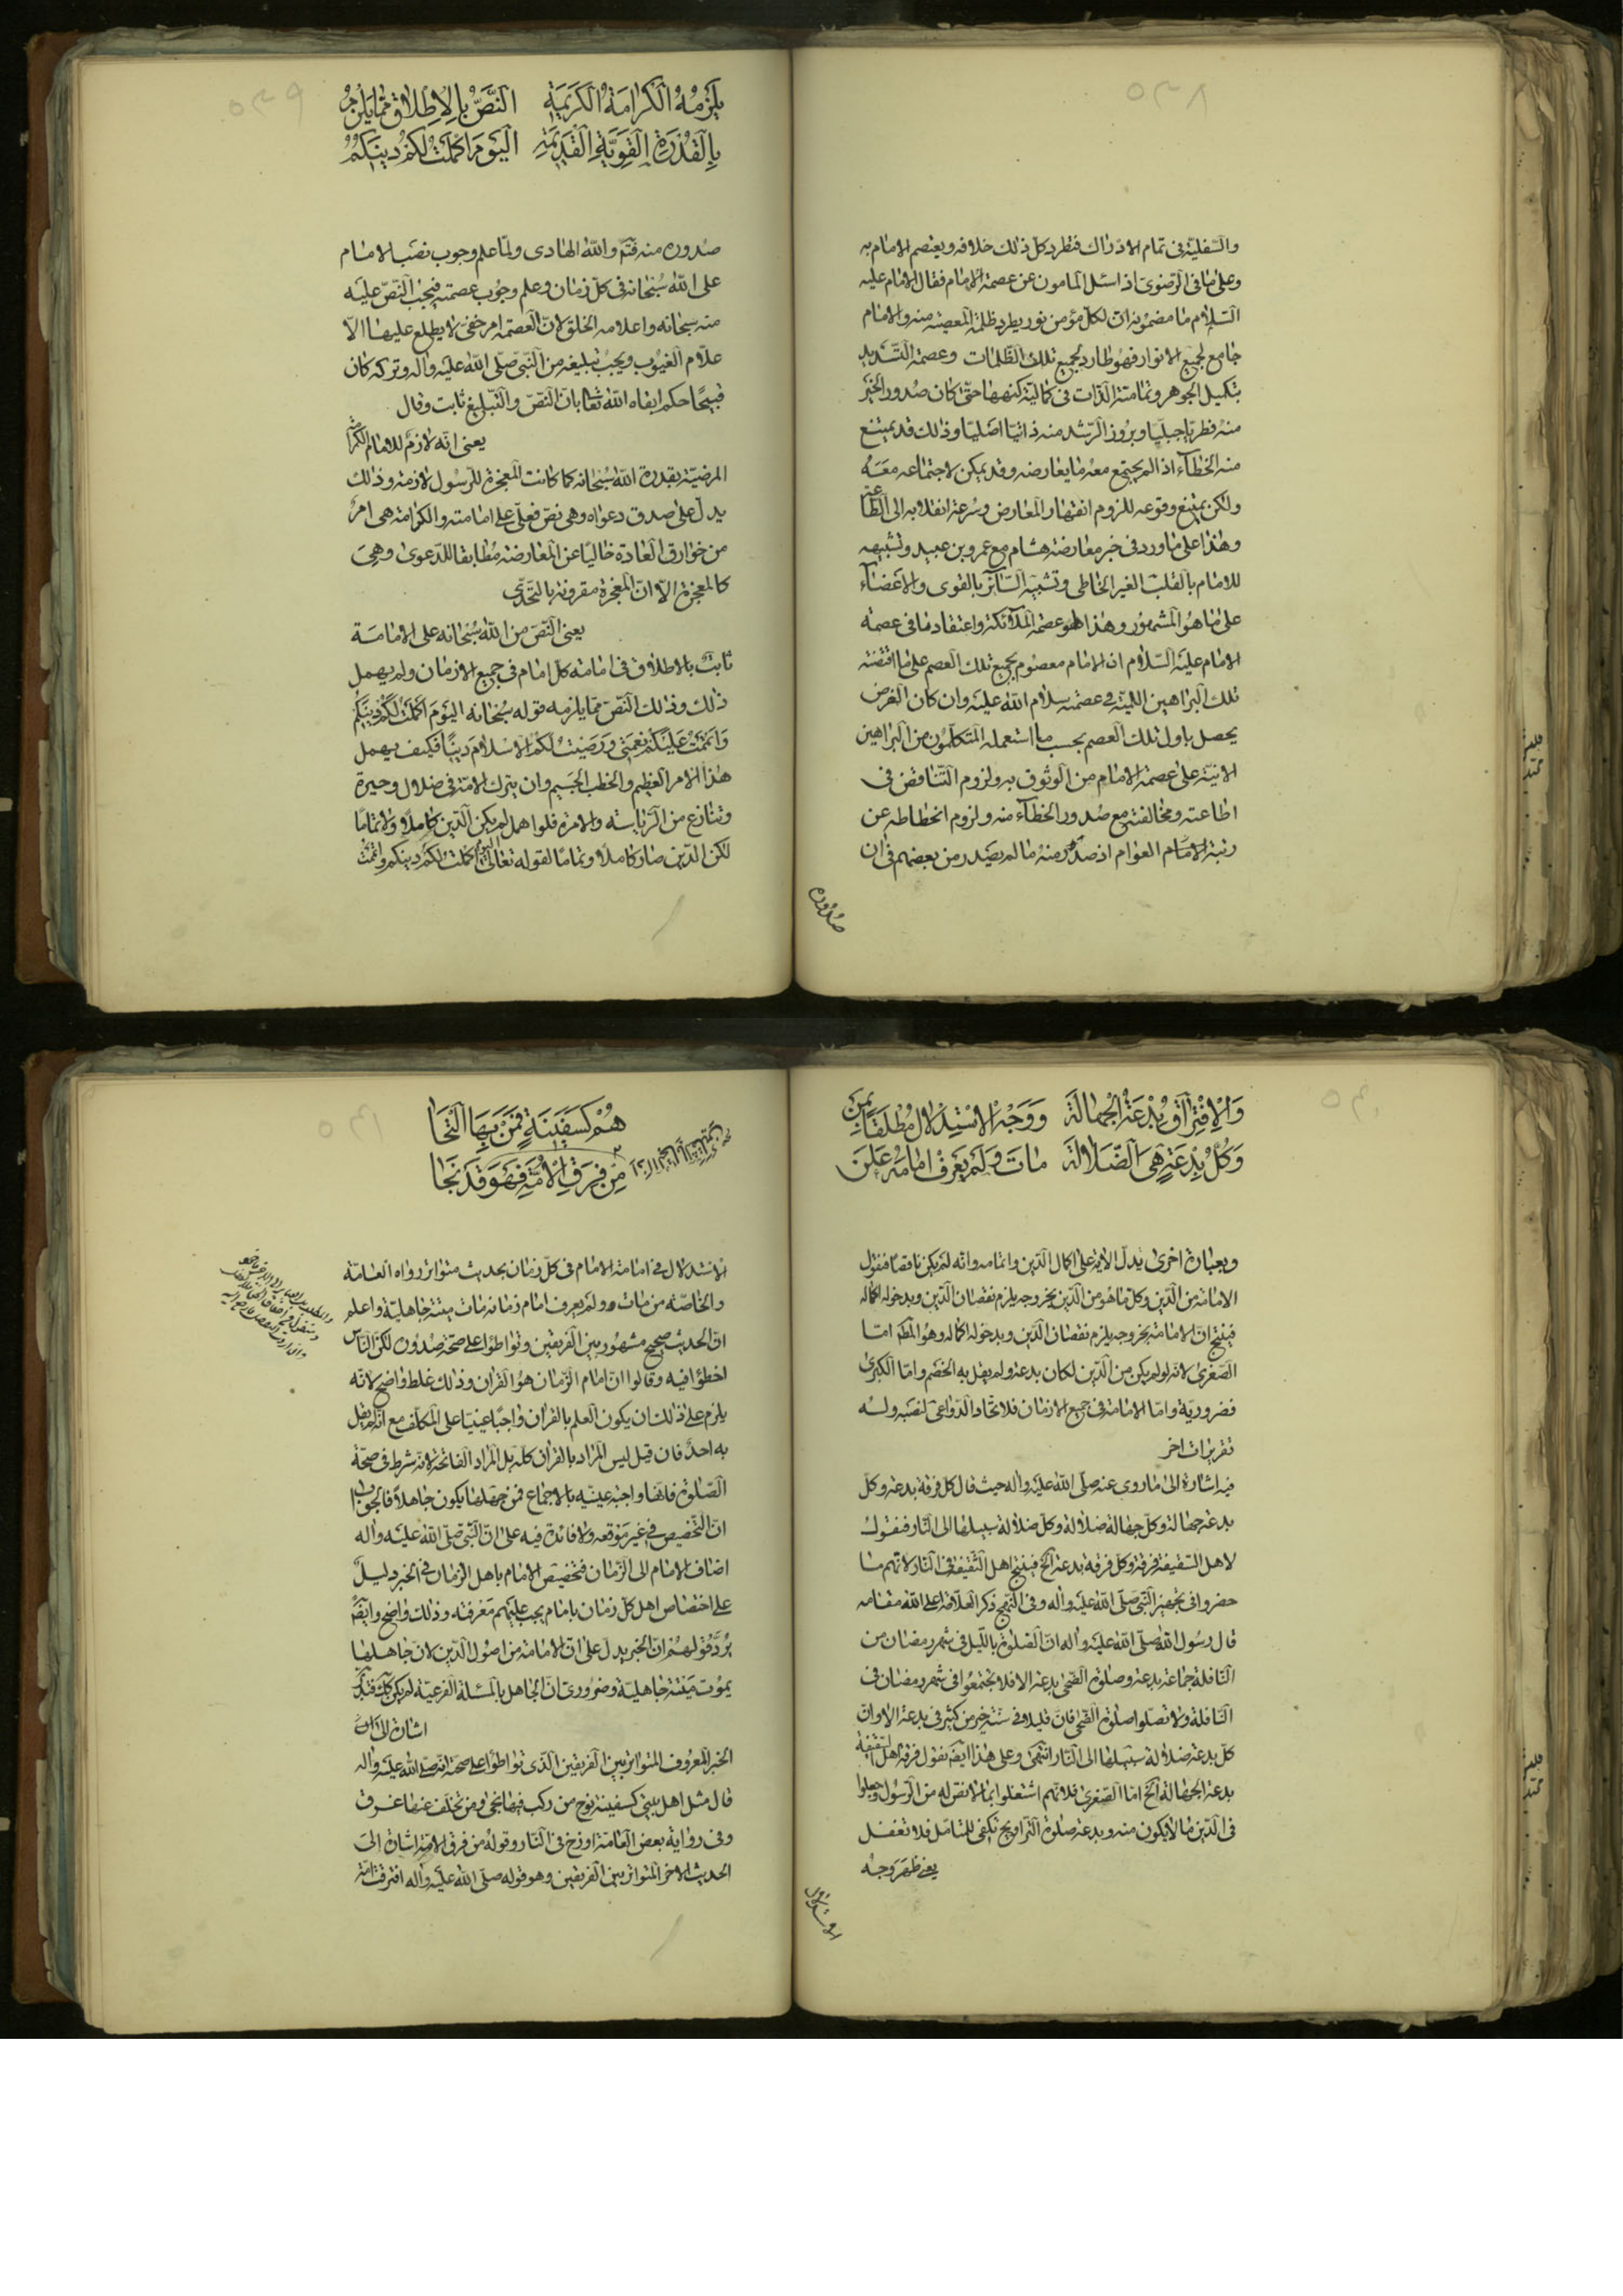 ٥٣٨
والسّفليّة فى تمام الادراك فنطرد كل ذلك خلافه ويعتصم الامام به
وعلى ما فى الرّضوىّ اذ اسئل المأمون عن عصمة الامام فقال الامام عليه
السّلام ما مضمونه ان لكلّ مؤمن نور يطرد ظلمة المعصية منه والامام
جامع لجميع الانوار فهو طارد لجميع تلك الظّلمات وعصمة التّسديد
بتكميل الجوهر وتماميّة الذّات فى كماليّة كنهها حتّى كان صدور الخير
منه فطريّا جبليّا وبروز الرّشد منه ذاتيّا اصليّا وذلك قد يمتنع
منه الخطآء اذ الم يجتمع معه ما يعارضه وقد يمكن لاجتماعه معه
ولكن يمتنع وقوعه للزوم انقهار المعارض وسرعة انقلابه الى الطّاعة
وهذا على ما ورد فى خبر معارضة هشام مع عمرو بن عبيد وتشبيهه
للامام بالقلب الغير الخاطى وتشبيه السّآئر بالقوى والاعضآء
على ما هو المشهور وهذا هو عصمة الملآئكة واعتقادنا فى عصمة
الامام عليه السّلام ان الامام معصوم بجميع تلك العصم على ما اقتضته
تلك البراهين اللّميّة فى عصمته سلام الله عليه وان كان الغرض
يحصل باول تلك العصم بحسب ما استعمله المتكلّمون من البراهين
الانيّة على عصمة الامام من الوثوق به ولزوم التّناقض فى
اطاعته ومخالفته مع صدور الخطآء منه ولزوم انحطاطه عن
رتبة الامام العوام اذ صدر منه ما لم يصدر من بعضهم فى ان
صدوره
٥٣٩
يلزمه الكرامة الكريمة النّصّ بالاطلاق ممّا يلزم
بالقدرة القويّة القديمة اليوم اكملت لكم دينكم
صدوره منه فتمّ والله الهادى ولمّا علم وجوب نصب الامام
على الله سبحانه فى كلّ زمان وعلم وجوب عصمته فيجب النّصّ عليه
منه سبحانه واعلامه الخلق لانّ العصمة امر خفىّ لا يطلع عليها الّا
علّام الغيوب ويجب تبليغه من النّبى صلّى الله عليه واله وتركه كان
قبيحًا حكم ابقاه الله تعا بان النّصّ والتّبليغ ثابت وقال
يعنى انّه لازم للامام الكرامة
المرضيّة بقدرة الله سبحانه كما كانت المعجزة للرّسول لازمة وذلك
يدلّ على صدق دعواه وهى نصّ فعلىّ على امامته والكرامة هى امر
من خوارق العادة خاليًا عن المعارضة مطابقا للدّعوى وهى
كالمعجزة الّا انّ المعجزة مقرونة بالتّحدّى
يعنى النّصّ من الله سبحانه على الامامة
ثابت بالاطلاق فى امامة كلّ امام فى جميع الازمان ولم يهمل
ذلك وذلك النّصّ ممّا يلزمه قوله سبحانه اليوم اكملت لكم دينكم
واتممت عليكم نعمتى ورضيت لكم الاسلام دينًا فكيف يهمل
هذا الامر العظيم والخطب الجسيم وان يترك الامّة فى ضلال وحيرة
وتنازع من الرّياسة والامرة فلو اهمل لم يكن الدّين كاملًا ولا تمامًا
لكن الدّين صار كاملًا وتمامًا لقوله تعالى اليوم اكملت لكم دينكم واتممت
٥٤٠
والافتراق بدعة الجهالة ووجه الاستدلال مطلقا بمن
وكلّ بدعة هى الضّلالة مات ولم يعرف امامه علن
وبعبارة اخرى يدلّ الاية على اكمال الدّين واتمامه وانّه لم يكن ناقصًا فنقول
الامامة من الدّين وكلّ ما هو من الدّين بخروجه يلزم نقصان الدّين وبدخوله اكماله
فينتج انّ الامامة بخروجه يلزم نقصان الدّين وبدخوله اكماله وهو المطم امّا
الصّغرى لانّه لو لم يكن من الدّين لكان بدعة ولم يقل به الخصم وامّا الكبرى
فضروريّة وامّا الامامة فى جميع الازمان فلاتّحاد الدّواعى لنصبه وله
تقريرات اخر
فيه اشارة الى ما روى عنه صلّى الله عليه واله حيث قال كل فرقة بدعة وكل
بدعة جهالة وكلّ جهالة ضلالة وكلّ ضلالة سبيلها الى النّار فنقول
لاهل السّقيفة فرقة وكلّ فرقة بدعة الخ فينتج اهل السّقيفة فى النّار لانّهم ما
حضروا فى تجهيز النّبىّ صلّى الله عليه واله وفى النّهج ذكر العلّامة اعلى الله مقامه
قال رسول الله صلّى الله عليه واله انّ الصّلوة باللّيل فى شهر رمضان من
النّافلة جماعة بدعة وصلوة الضّحى بدعة الا فلا تجتمعوا فى شهر رمضان فى
النّافلة ولا تصلّوا صلوة الضّحى فانّ قليلا فى سنّة خير من كثير فى بدعة الا وانّ
كلّ بدعة ضلالة سبيلها الى النّار انتهى وعلى هذا ايضًا نقول فرقة اهل السّقيفة
بدعة الجهالة الخ امّا الصّغرى فلانّهم اشتغلوا بما لا نصّ له من الرّسول وجعلوا
فى الدّين ما لا يكون منه وبدعة صلوة التّراويح تكفى للمتامّل فلا تغفل
يعنى ظهر وجه
الاستدلال
٥٤١
هم كسفينة فمن بها التجا
من فرق الامّة فهو قد نجا
الاستدلال فى امامة الامام فى كلّ زمان بحديث متواتر رواه العامّة
والخاصّة من مات ولم يعرف امام زمانه مات ميتة جاهليّة واعلم
انّ الحديث صحيح مشهور بين الفريقين وتواطؤا على صحّة صدوره لكن النّاس
اخطؤا فيه وقالوا انّ امام الزّمان هو القران وذلك غلط واضح لانّه
يلزم على ذلك ان يكون العلم بالقران واجبًا عينيّا على المكلّف مع انّه لم يقل
به احد فان قيل ليس المراد بالقران كله بل المراد الفاتحة لانّه شرط فى صحّة
الصّلوة فانّها واجبة عينيّه بالاجماع فمن جهلها يكون جاهلًا فالجواب
انّ التّخصيص فى غير موقعه ولا فائدة فيه على انّ النّبىّ صلّى الله عليه واله
اضاف الامام الى الزّمان فتخصيص الامام باهل الزّمان فى الخبر دليل
على اختصاص اهل كلّ زمان بامام يجب عليهم معرفته وذلك واضح وايضًا
يردّ قولهم ان الخبر يدلّ على انّ الامامة من اصول الدّين لانّ جاهلها
يموت ميتة جاهليّة وضرورى انّ الجاهل بالمسئلة الفرعيّة لم يكن كك فتدبّر
اشارة الى ان
الخبر المعروف المتواتر بين الفريقين الّذى تواطؤا على صحّته انّه صلّى الله عليه واله
قال مثل اهل بيتى كسفينة نوح من ركب فيها نجى ومن تخلّف عنها غرق
وفى رواية بعض العامّة اوزخ فى النّار وقوله من فرق الامّة اشارة الى
الحديث الاخر المتواتر بين الفريقين وهو قوله صلّى الله عليه واله افترقت امّة